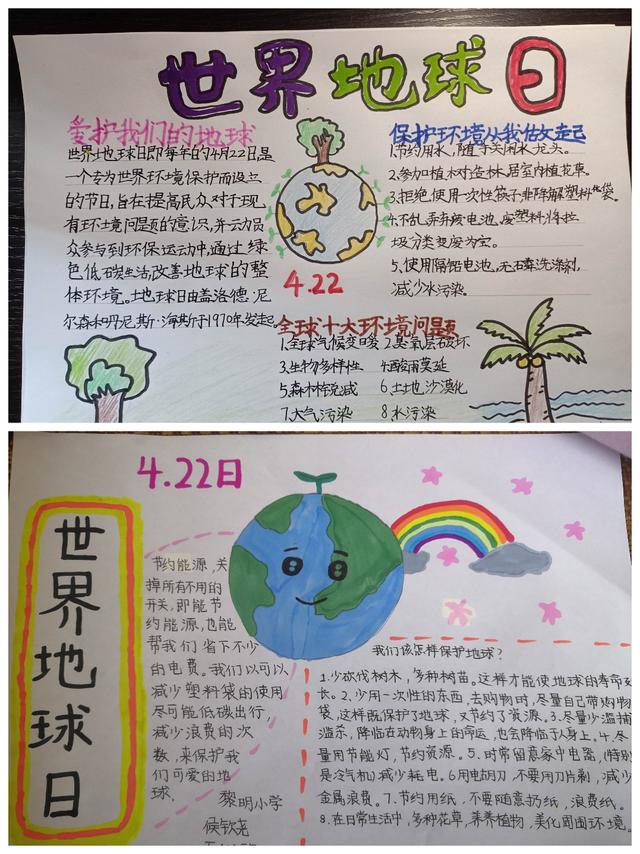 世界地球日
爱护我们的地球
世界地球日即每年的4月22日,是
一个专为世界环境保护而设立
的节日,旨在提高民众对于现
有环境问题的意识,并动员民
众参与到环保运动中,通过绿
色低碳生活,改善地球的整
体环境。地球日由盖洛德·尼
尔森和丹尼斯·海斯于1970年发起。
4.22
保护环境从我做起
1.节约用水,随手关闭水龙头。
2.参加植树造林,居室内植花草。
3.拒绝使用一次性筷子非降解塑料袋。
4.不乱弃废电池、废塑料,将垃
圾分类变废为宝。
5、使用隔铅电池、无磷洗涤剂,
减少水污染。
全球十大环境问题
1、全球气候变日暖 2、臭氧层破坏
3、生物多样性 4.酸雨蔓延
5、森林锐减 6、土地沙漠化
7、大气污染 8、水污染
4.22日
世界地球日
节约能源,关
掉所有不用的
开关,即能节
约能源,也能
帮我们省下不少
的电费。我们以可以
减少塑料袋的使用
尽可能低碳出行,
减少浪费的次
数,来保护我
们可爱的地
球.
黎明小学
侯钦尧
我们该怎样保护地球?
1.少砍伐树木,多种树苗。这样才能使地球的寿命
长。2.少用一次性的东西,去购物时,尽量自己带购物
袋,这样既保护了地球,又节约了资源。3.尽量少滥捕
滥杀,降临在动物身上的命运,也会降临于人身上。4.尽
量用节能灯,节约资源。5.时常留意家中电器,(特别
是冷气机)减少耗电。6.用电胡刀,不要用刀片剃,减少
金属浪费。7.节约用纸,不要随意扔纸,浪费纸。
8.在日常生活中,多种花草,养养植物,美化周围环境。